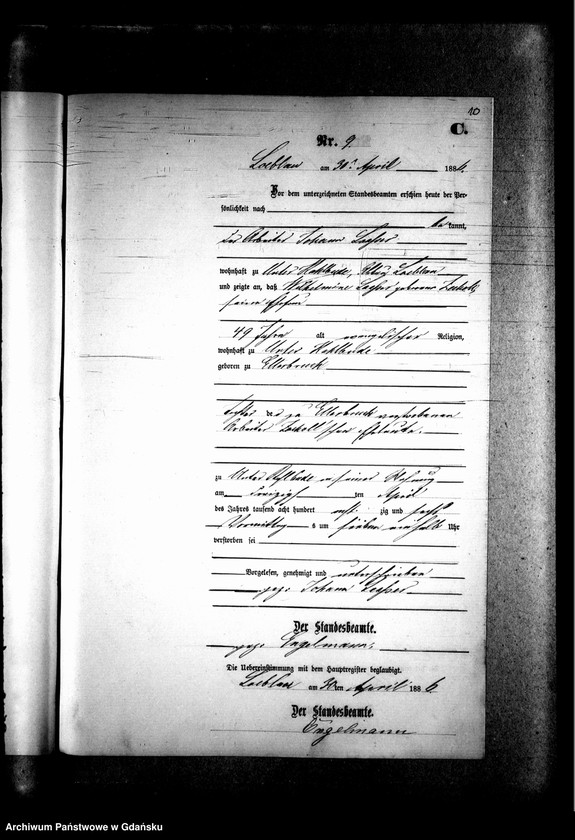 10
C.
Nr. 9
Loeblau am 30. April 1886.
Vor dem unterzeichneten Standesbeamten erschien heute der Per-
sönlichkeit nach
bekannt,
der Arbeiter Johann
wohnhaft zu Unter Kahlbude, Loeblau
und zeigte an, daß Wilhelmine geborene
seine Ehefrau
49 Jahre alt evangelischer Religion,
wohnhaft zu Unter Kahlbude
geboren zu Ellerbruch
Tochter der zu Ellerbruch verstorbenen
Arbeiter Eheleute.
zu Unter Kahlbude in seiner Wohnung
am dreißigsten April
des Jahres tausend acht hundert achtzig und sechs
Vormittags um sieben einhalb Uhr
verstorben sei
Vorgelesen, genehmigt und unterschrieben
gez. Johann
Der Standesbeamte.
gez. Engelmann.
Die Uebereinstimmung mit dem Hauptregister beglaubigt.
Loeblau am 30ten April 1886
Der Standesbeamte.
Engelmann
Archiwum Państwowe w Gdańsku